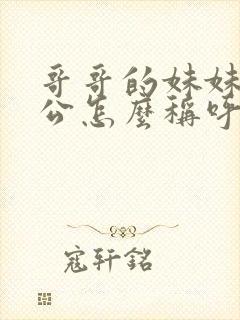 哥哥的妹妹
公怎麼稱呼
寇轩銘